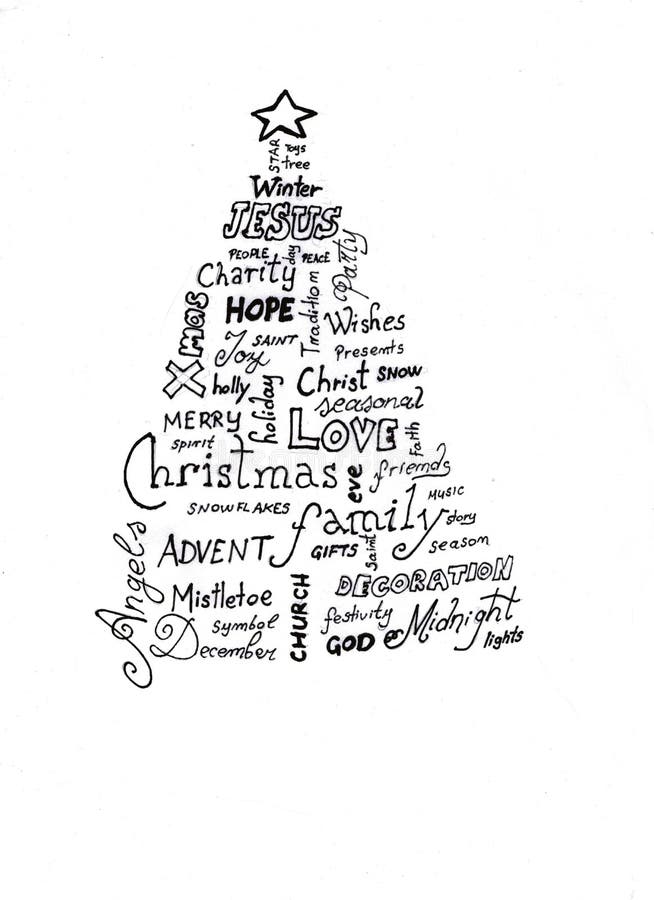 STAR Toys
tree
Winter
JESUS
PEOPLE day PEACE Party
Charity
Xmas HOPE Tradition Wishes
Joy SAINT Presents
holly holiday Christ SNOW
seasonal
MERRY LOVE faith
spirit
Christmas eve friends
SNOWFLAKES family MUSIC
story
Angels ADVENT GIFTS Saint season
DECORATION
Mistletoe CHURCH festivity Midnight
symbol
December GOD lights